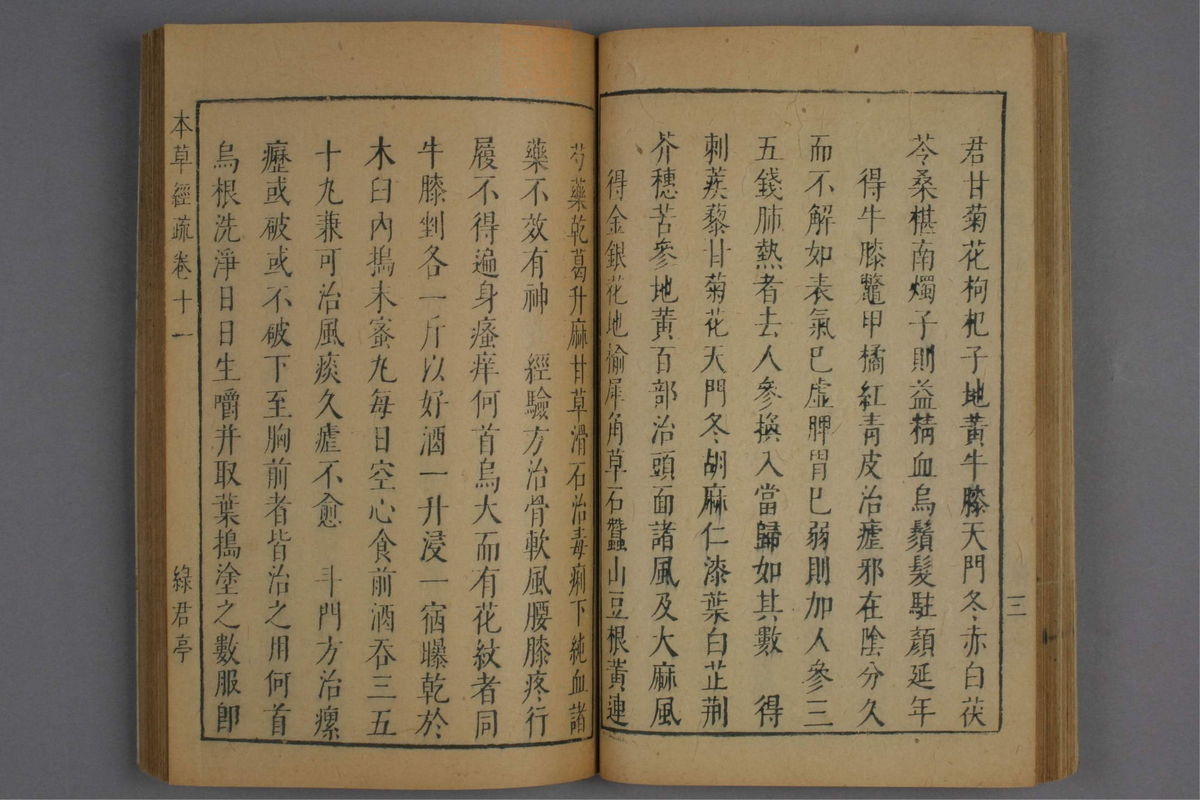 君甘菊花枸杞子地黃牛膝天門冬赤白茯
苓桑椹南燭子則益精血烏鬚髮駐顏延年
得牛膝鼈甲橘紅青皮治瘧邪在陰分久
而不解如表氣巳虛脾胃巳弱則加人參三
五錢肺熱者去人參換入當歸如其數　得
刺蒺藜甘菊花天門冬胡麻仁漆葉白芷荆
芥穗苦參地黃百部治頭面諸風及大麻風
得金銀花地榆犀角草石蠶山豆根黃連
三
芍藥乾葛升麻甘草滑石治毒痢下純血諸
藥不效有神　經驗方治骨軟風腰膝疼行
履不得遍身瘙痒何首烏大而有花紋者同
牛膝剉各一斤以好酒一升浸一宿曝乾於
木臼內搗末蜜丸每日空心食前酒吞三五
十丸兼可治風痰久瘧不愈　斗門方治瘰
癧或破或不破下至胸前者皆治之用何首
烏根洗淨日日生嚼并取葉搗塗之數服卽
本草經疏卷十一
綠君亭